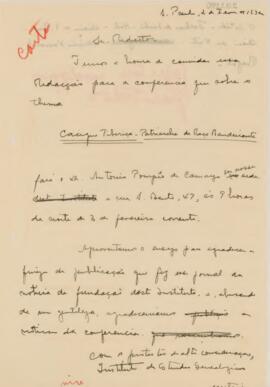 carta
S. Paulo, 2 de
Sr. Redactor
Temos a honra de convidar essa
Redacção para a conferencia que sobre o
thema
Cacique Tibiriça - Patriarcha da Raça Bandeirante
fará o Antonio Pompêo de Camargo em nossa
séde
deste Instituto, rua S. Bento, 47, ás 9 horas
da noite de 3 de fevereiro corrente.
Aproveitamos o ensejo para agradecer
a publicação que fez seu jornal da
noticia da fundação deste Instituto, e, abusando
de sua gentileza, agradeceriamos
noticiar da conferencia
Com os protestos de alta consideração,
Instituto de Estudos Genealogicos
vire